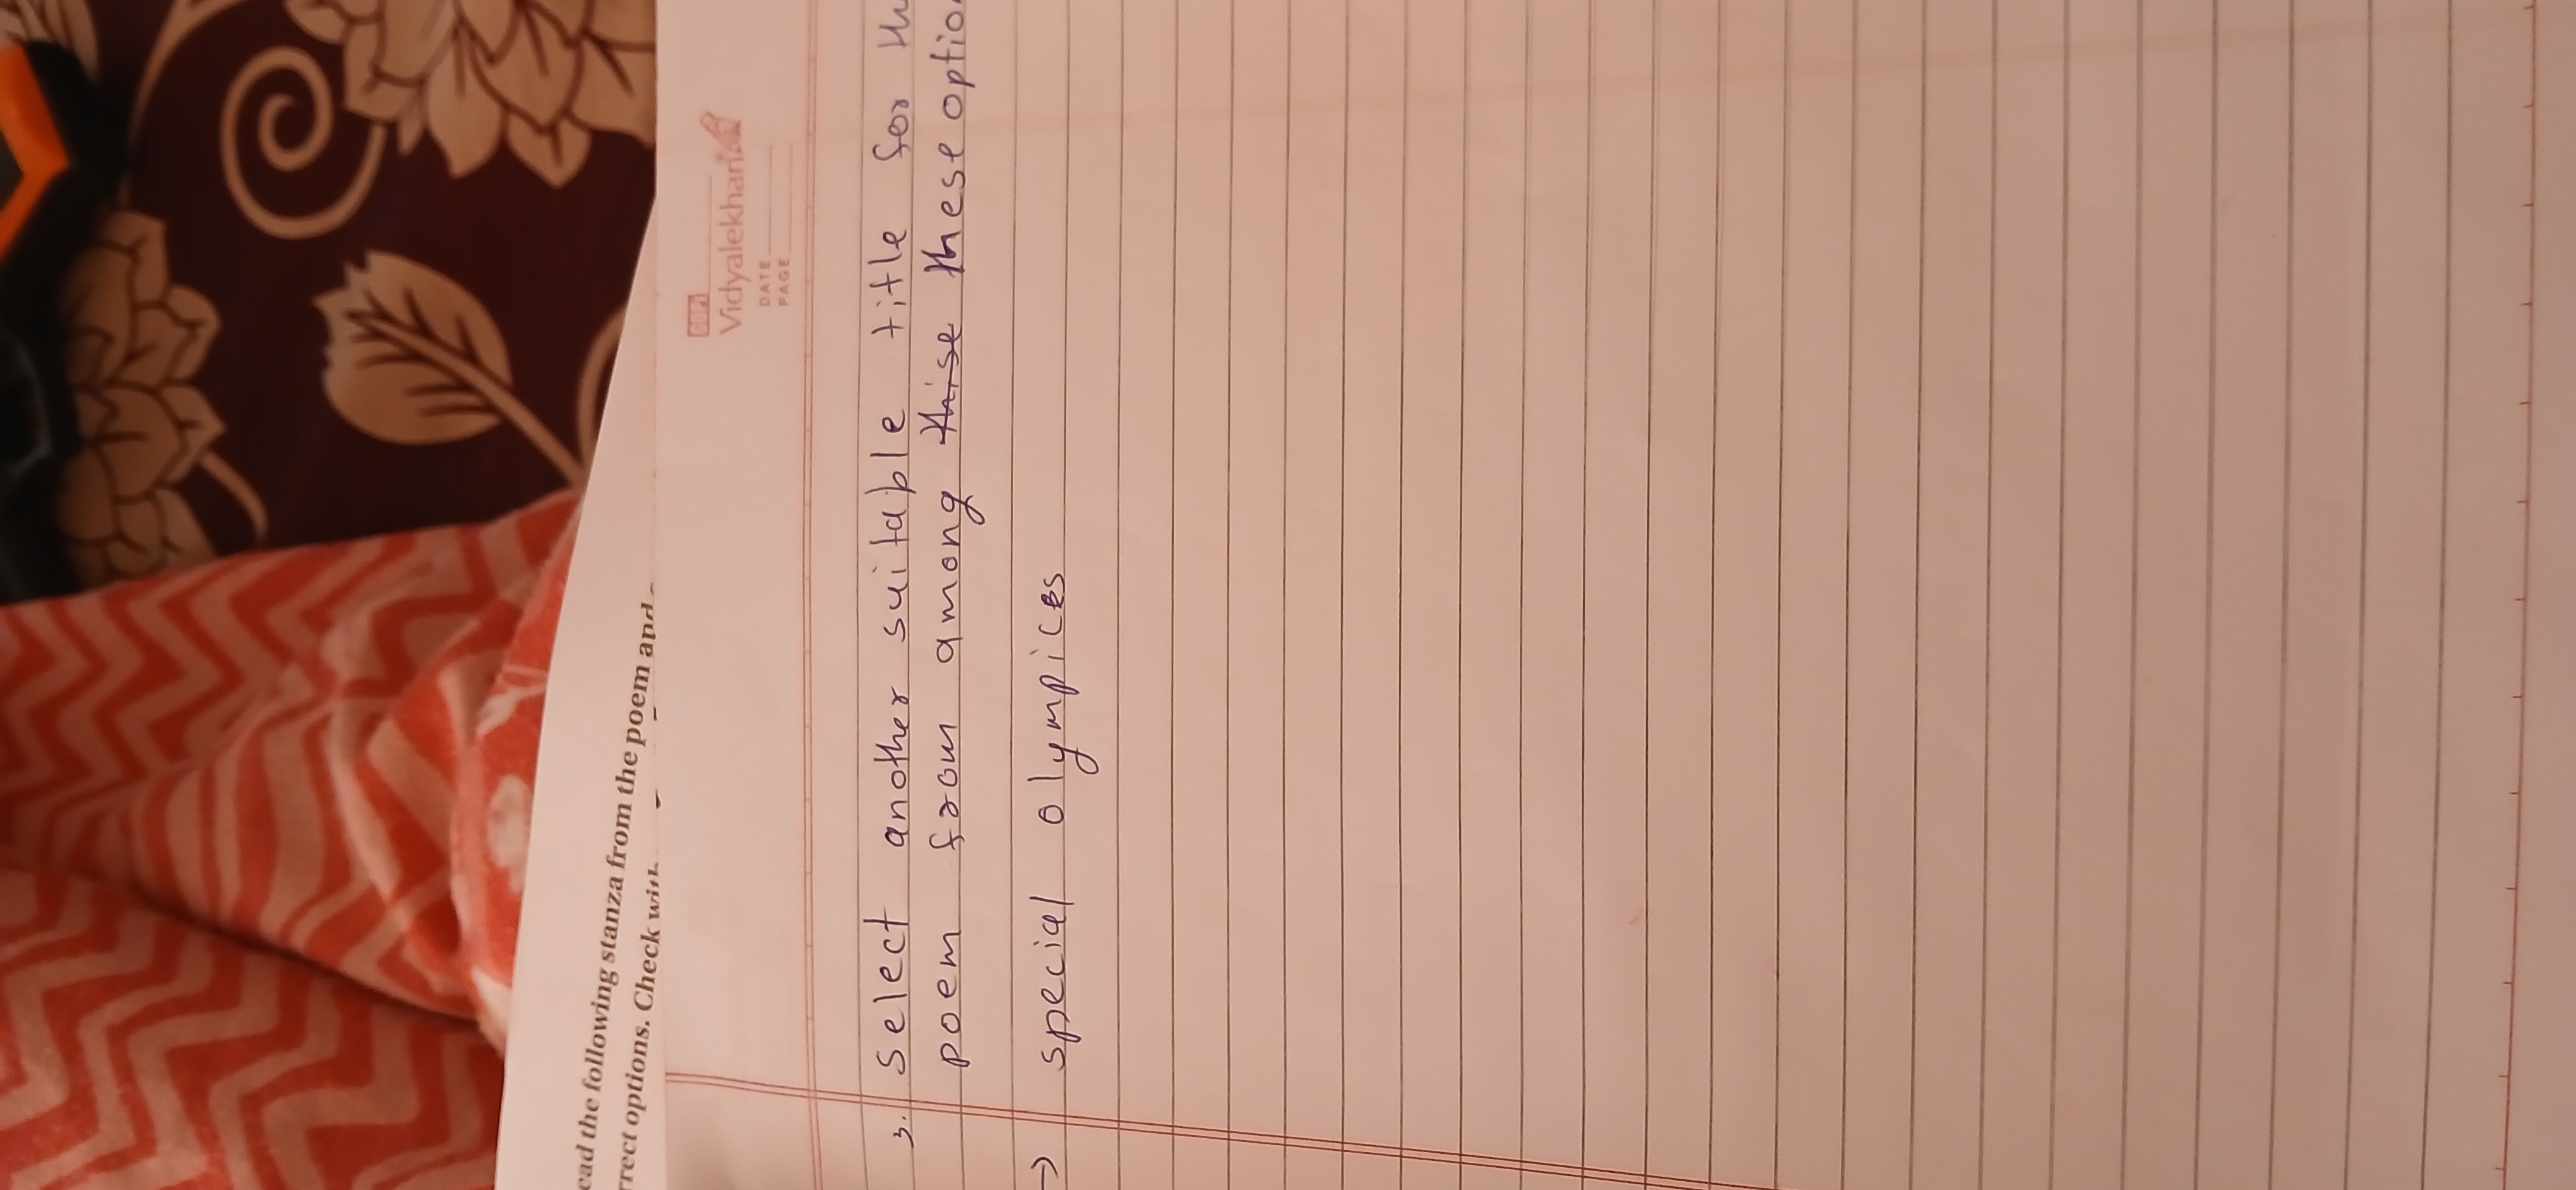 ead the following stanza from the poem and
rrect options. Check
Vidyalekhan
DATE
PAGE
3. select another suitable title for
poem from among thise these
→ special olympics